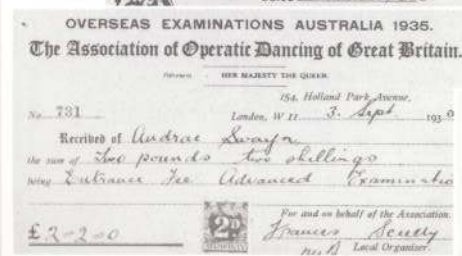 OVERSEAS EXAMINATIONS AUSTRALIA 1935.
The Association of Operatic Dancing of Great Britain.
HER MAJESTY THE QUEEN.
154, Holland Park Avenue,
No. 731 London, W 11 3. Sept 193
Received of Andrae
the sum of Two pounds two shillings
being Entrance Fee Advanced Examinatio
For and on behalf of the Association.
£ 2-2-0 2D Frances Scully
Local Organizer.